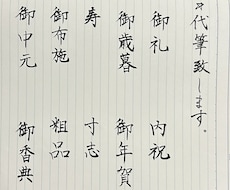 代筆致します。
御礼 内祝
御歳暮 御年賀
寿 寸志
御布施 粗品
御中元 御香典